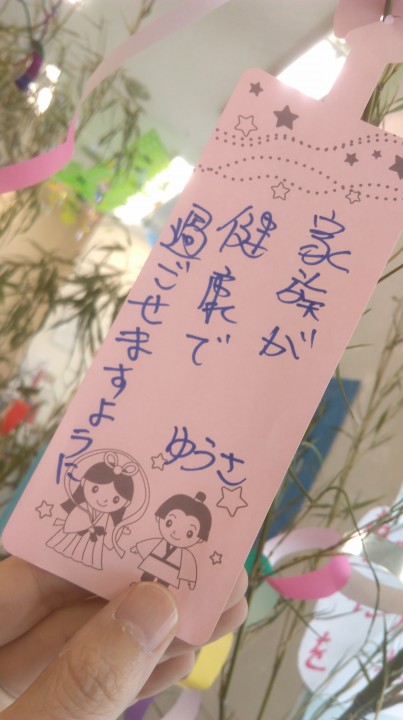 家族が
健康で
過ごせますように
ゆうさ
を